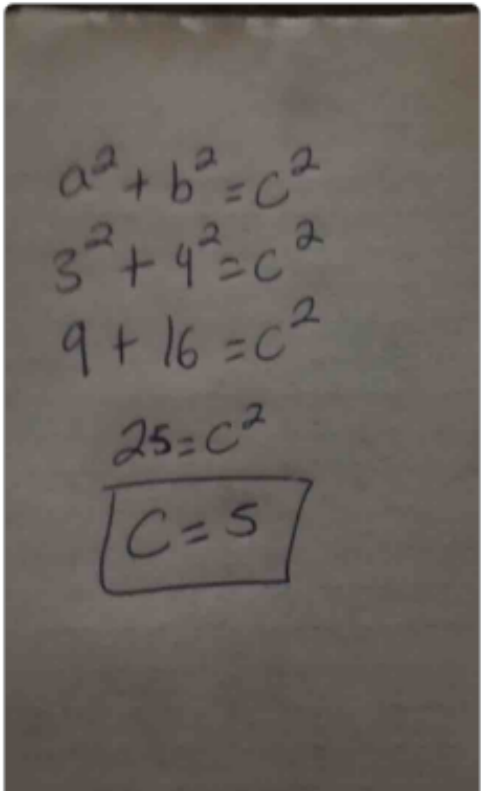 a² + b² = c²
3² + 4² = c²
9 + 16 = c²
25 = c²
C = 5